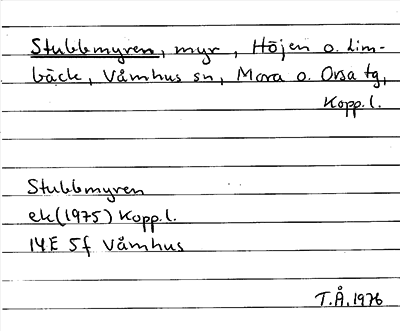 Stubbmyren, myr, Höjen o. Lim-
bäck, Våmhus sn, Mora o. Orsa tg,
Kopp.l.
Stubbmyren
ek(1975) Kopp.l.
14E 5f Våmhus
T.Å.1976